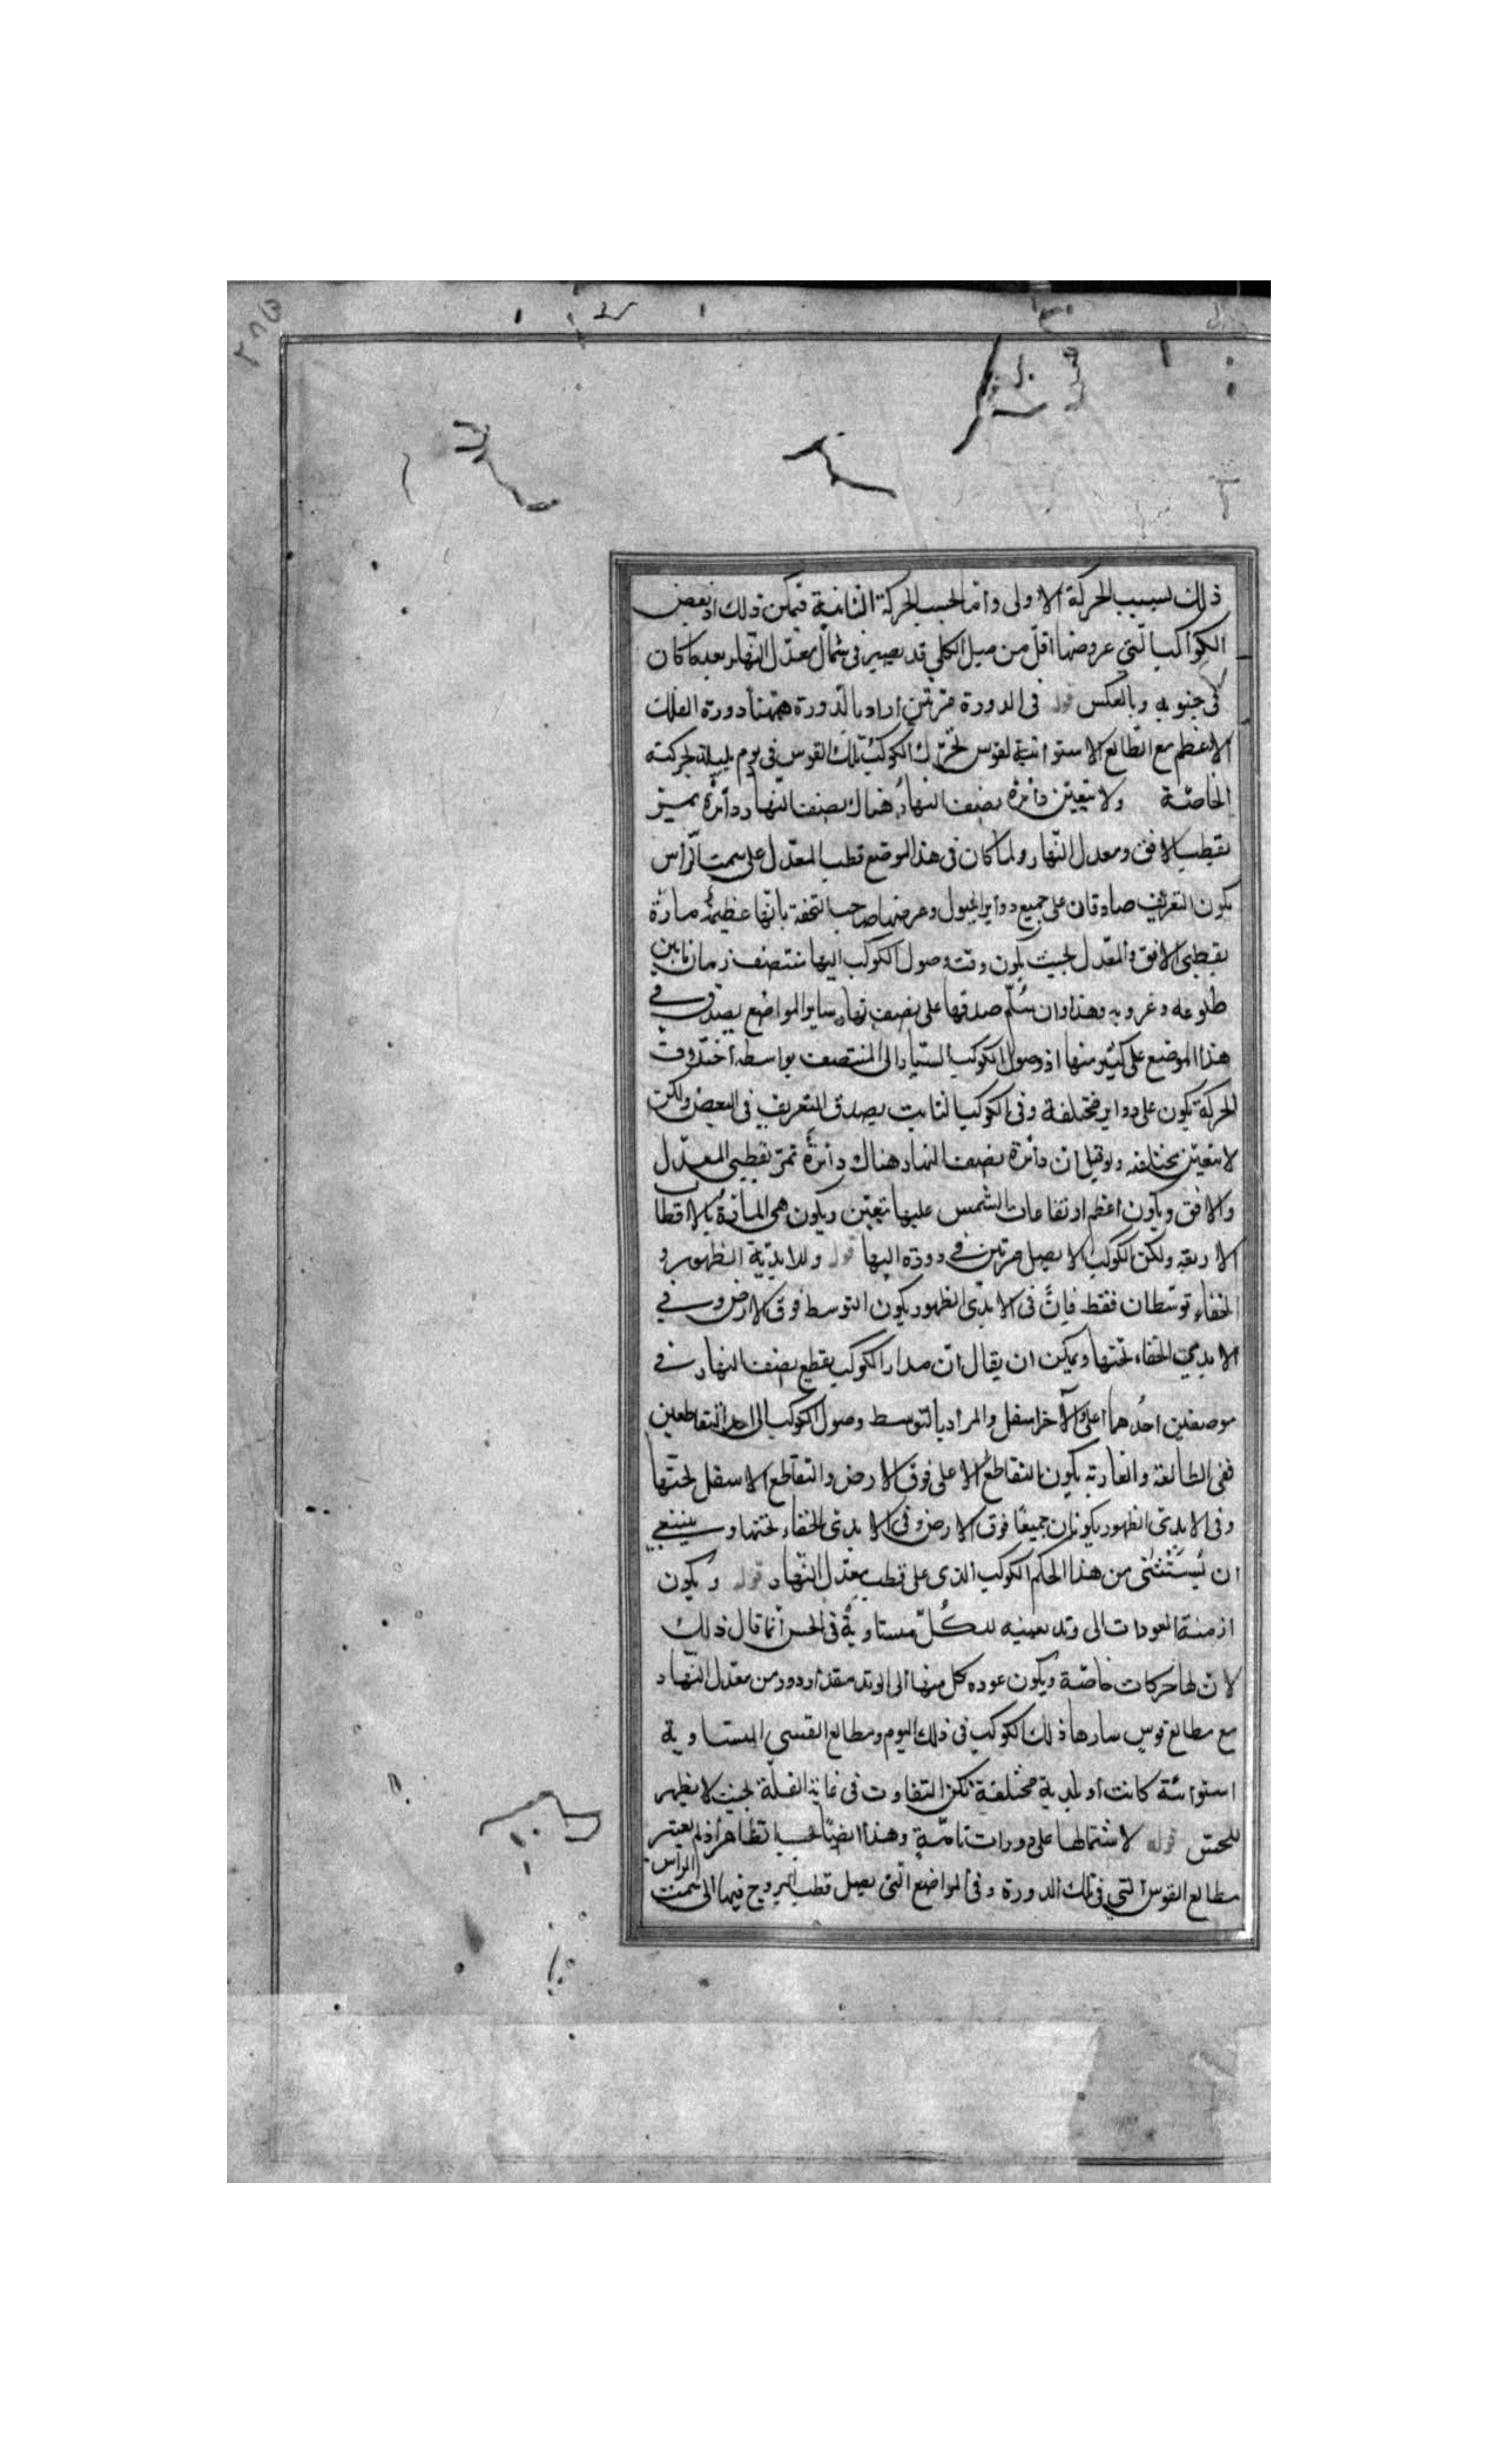 ذلك بسبب الحركة الاولى واما بحسب الحركة الثانية فيمكن ذلك اذ بعض
الكواكب التي عروضها اقل من ميل الكلي قد يصير في شمال معدل النهار بعد ما كان
في جنوبه وبالعكس قوله في الدورة مرتين اراد بالدورة ههنا دورة الفلك
الاعظم مع الطالع الاستوائية لقوس تحرك الكوكب تلك القوس في يوم بليلة بحركته
الخاصة ولا يتعين دائرة نصف النهار هناك نصف النهار دائرة تمر
بقطبي الافق ومعدل النهار ولما كان في هذا الموضع قطب المعدل على سمت الرأس
يكون التعريف صادقا على جميع دوائر الميول وعرفها صاحب التحفة بانها عظيمة مارة
بقطبي الافق والمعدل بحيث يكون وقت وصول الكوكب اليها منتصف زمان ما بين
طلوعه وغروبه وهذا وان سلم صدقها على نصف نهار ساير المواضع يصدق في
هذا الموضع على كثير منها اذ وصول الكوكب السيار الى المنتصف بواسطة اختلاف
الحركة تكون على دواير مختلفة وفي الكوكب الثابت يصدق التعريف في البعض ولكن
لا يتعين بختلفه ولو قيل ان دائرة نصف النهار هناك دائرة تمر بقطبي المعدل
والافق ويكون اعظم ارتفاعات الشمس عليها يتعين ويكون هي المارة بالاقطاب
الاربعة ولكن الكوكب لا يصل مرتين في دورة اليها قوله وللابدية الظهور و
الخفاء توسطان فقط فان في الابدي الظهور يكون التوسط فوق الارض وفي
الابدي الخفاء تحتها ويمكن ان يقال ان مدار الكوكب يقطع نصف النهار في
موضعين احدهما اعلى والآخر اسفل والمراد بالتوسط وصول الكوكب الى احد التقاطعين
ففي الطالعة والغاربة يكون التقاطع الاعلى فوق الارض والتقاطع الاسفل تحتها
وفي الابدي الظهور يكونان جميعا فوق الارض وفي الابدي الخفاء تحتها وينبغي
ان يستثنى من هذا الحكم الكوكب الذي على قطب معدل النهار قوله ويكون
ازمنة العودات الى وتد بعينه لكل مستاوية في الحس انما قال ذلك
لان لها حركات خاصة ويكون عوده كل منها الى الوتد مقدار دور من معدل النهار
مع مطالع قوس سارها ذلك الكوكب في ذلك اليوم ومطالع القسي المستاوية
استوائية كانت او بلدية مختلفة لكن التفاوت في غاية القلة بحيث لا يظهر
للحس قوله لاشتمالها على دورات تامة وهذا ايضا بحسب الظاهر اذ لم يعتبر
مطالع القوس التي في تلك الدورة وفي المواضع التي يصل قطب البروج فيها الى سمت الرأس